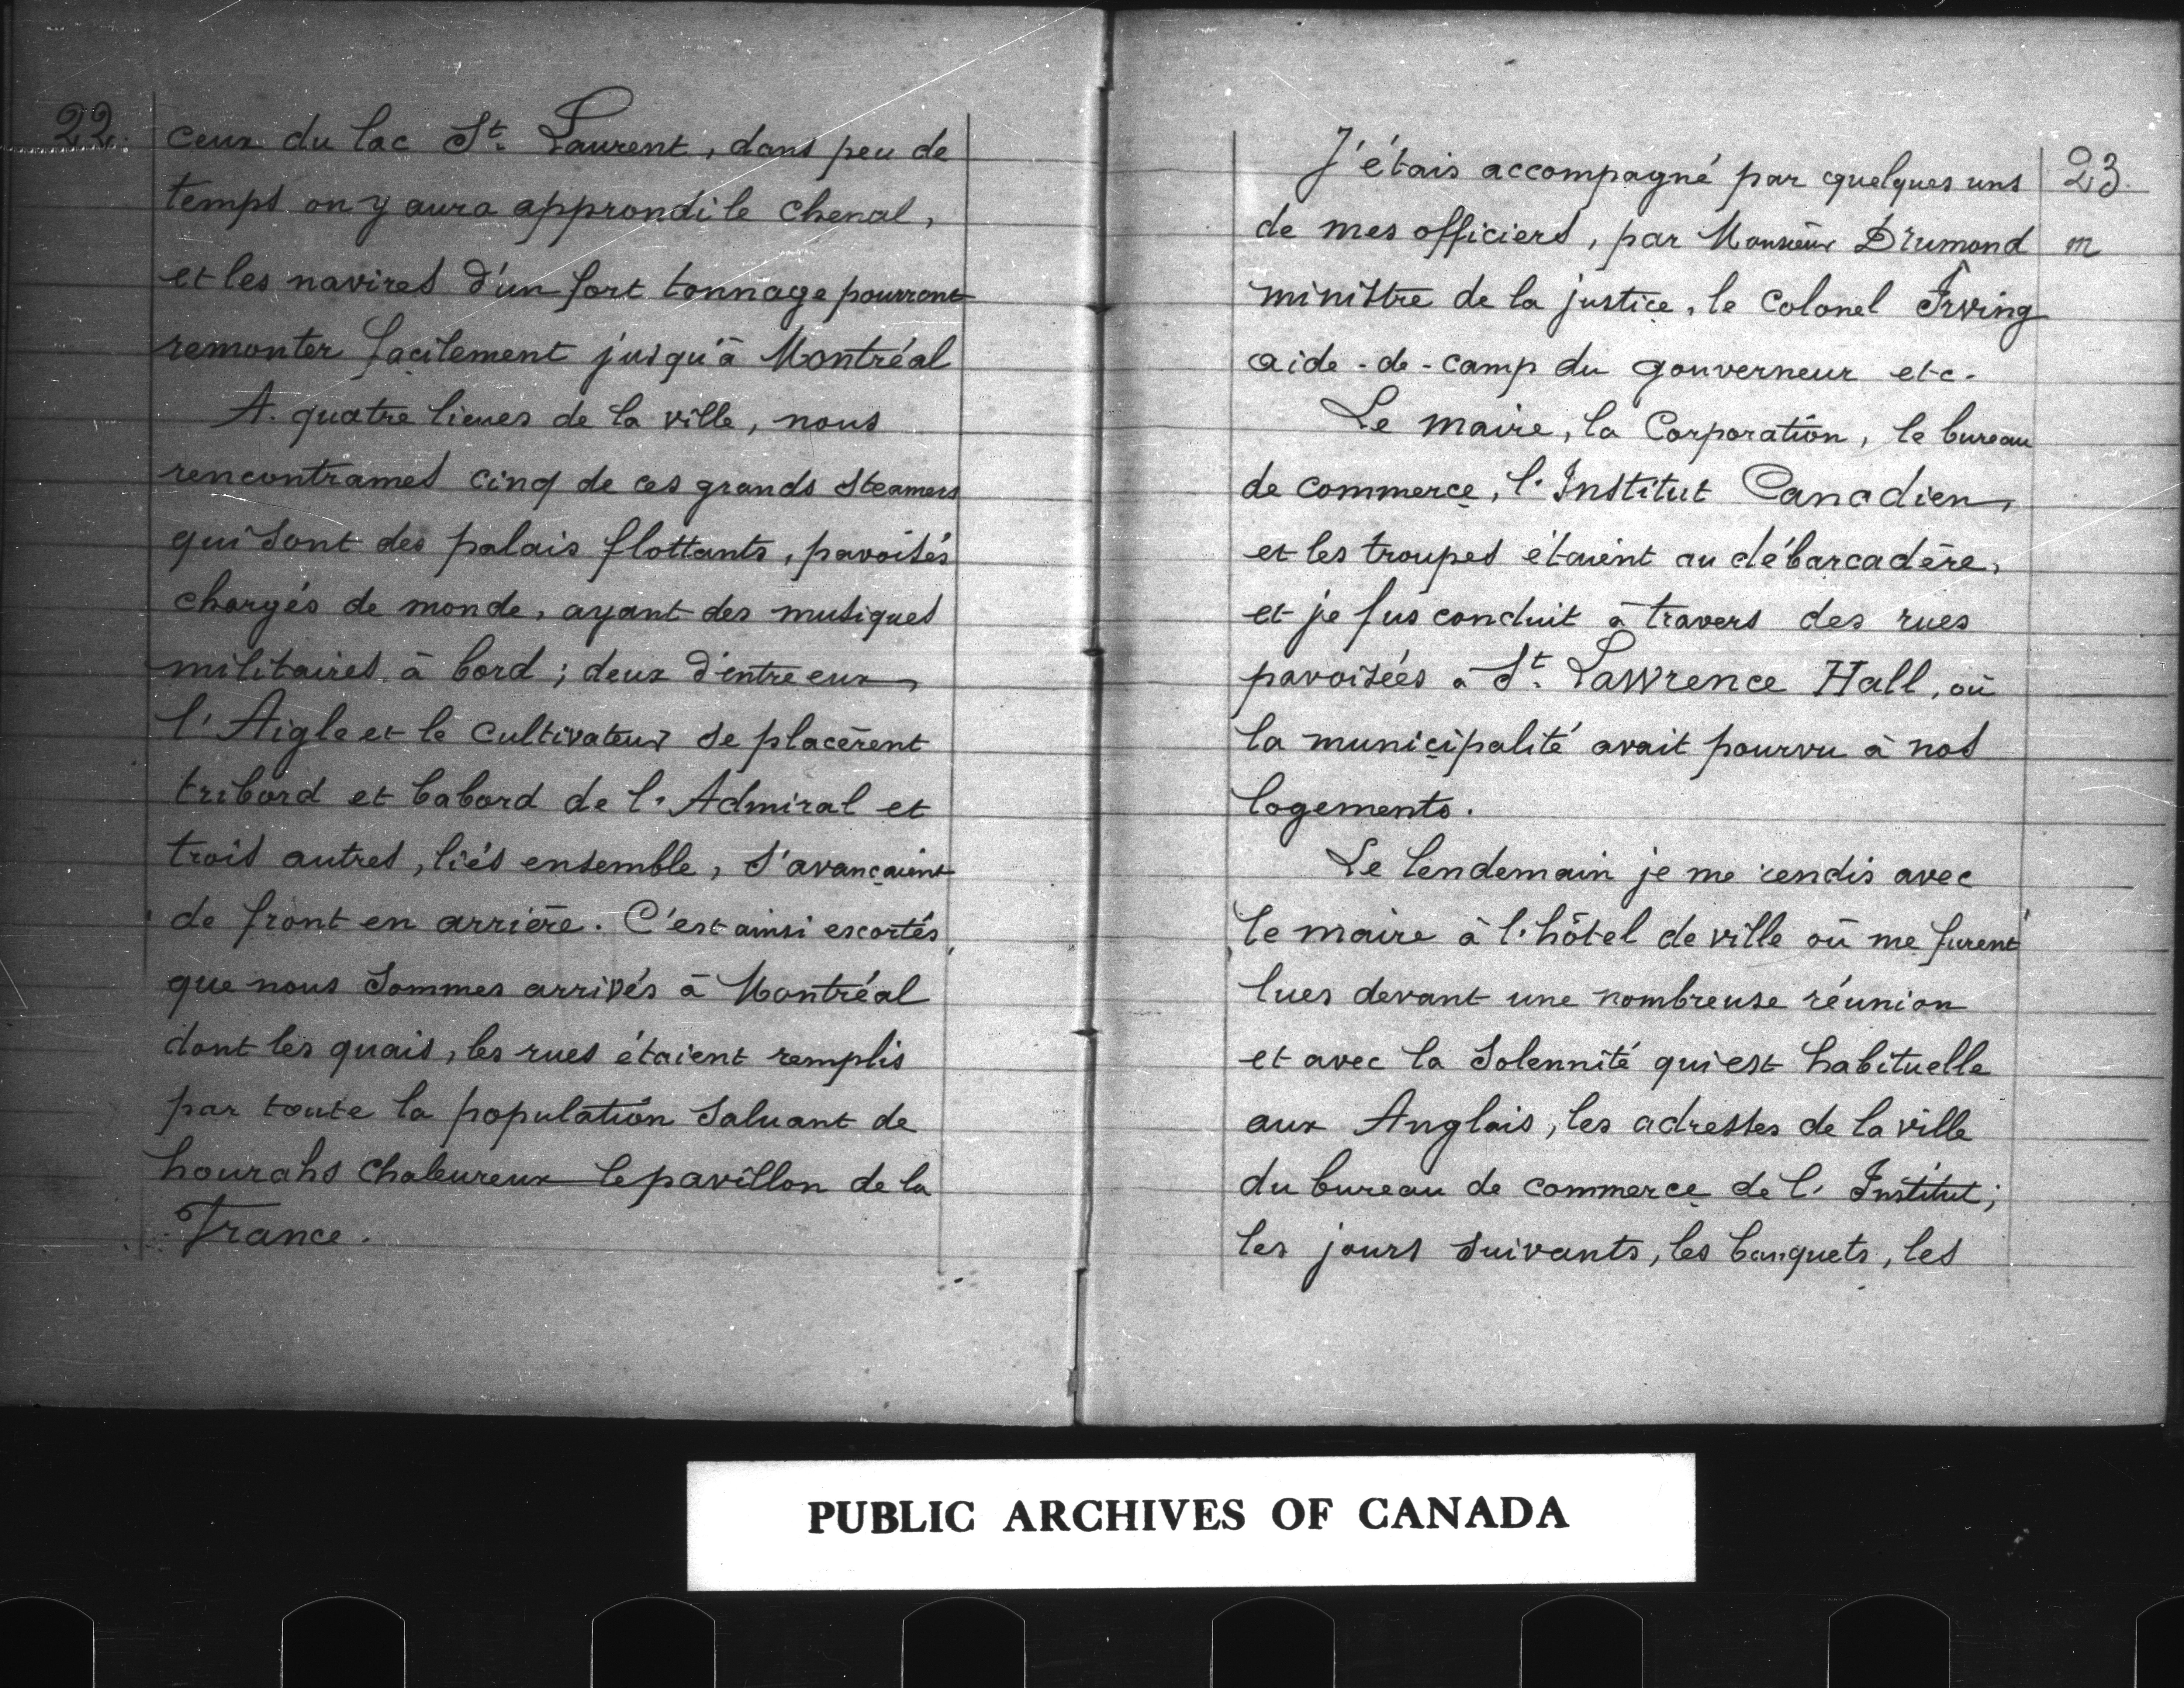 22.
ceux du lac St. Laurent, dans peu de
temps on y aura approndi le chenal,
et les navires d'un fort tonnage pourront
remonter facilement jusqu'à Montréal
A. quatre lieues de la ville, nous
rencontrames cinq de ces grands steamers
qui sont des palais flottants, pavoisés
chargés de monde, ayant des musiques
militaires à bord; deux d'entre eux,
l'Aigle et le cultivateur se placèrent
tribord et babord de l'Admiral et
trois autres, liés ensemble, s'avançaient
de front en arrière. C'est ainsi escortés,
que nous sommes arrivés à Montréal
dont les quais, les rues étaient remplis
par toute la population saluant de
hourahs chaleureux le pavillon de la
France.
23.
J'étais accompagné par quelques uns
de mes officiers, par Monsieur Drumond m
ministre de la justice, le Colonel Irving
aide-de-camp du gouverneur etc.
Le maire, la Corporation, le bureau
de commerce, l'Institut Canadien,
et les troupes étaient au débarcadère,
et je fus conduit à travers des rues
pavoisées à St. Lawrence Hall, où
la municipalité avait pourvu à nos
logements.
Le lendemain je me rendis avec
le maire à l'hôtel de ville où me furent
lues devant une nombreuse réunion
et avec la solennité qui est habituelle
aux Anglais, les adresses de la ville
du bureau de commerce de l'Institut;
les jours suivants, les banquets, les
PUBLIC ARCHIVES OF CANADA